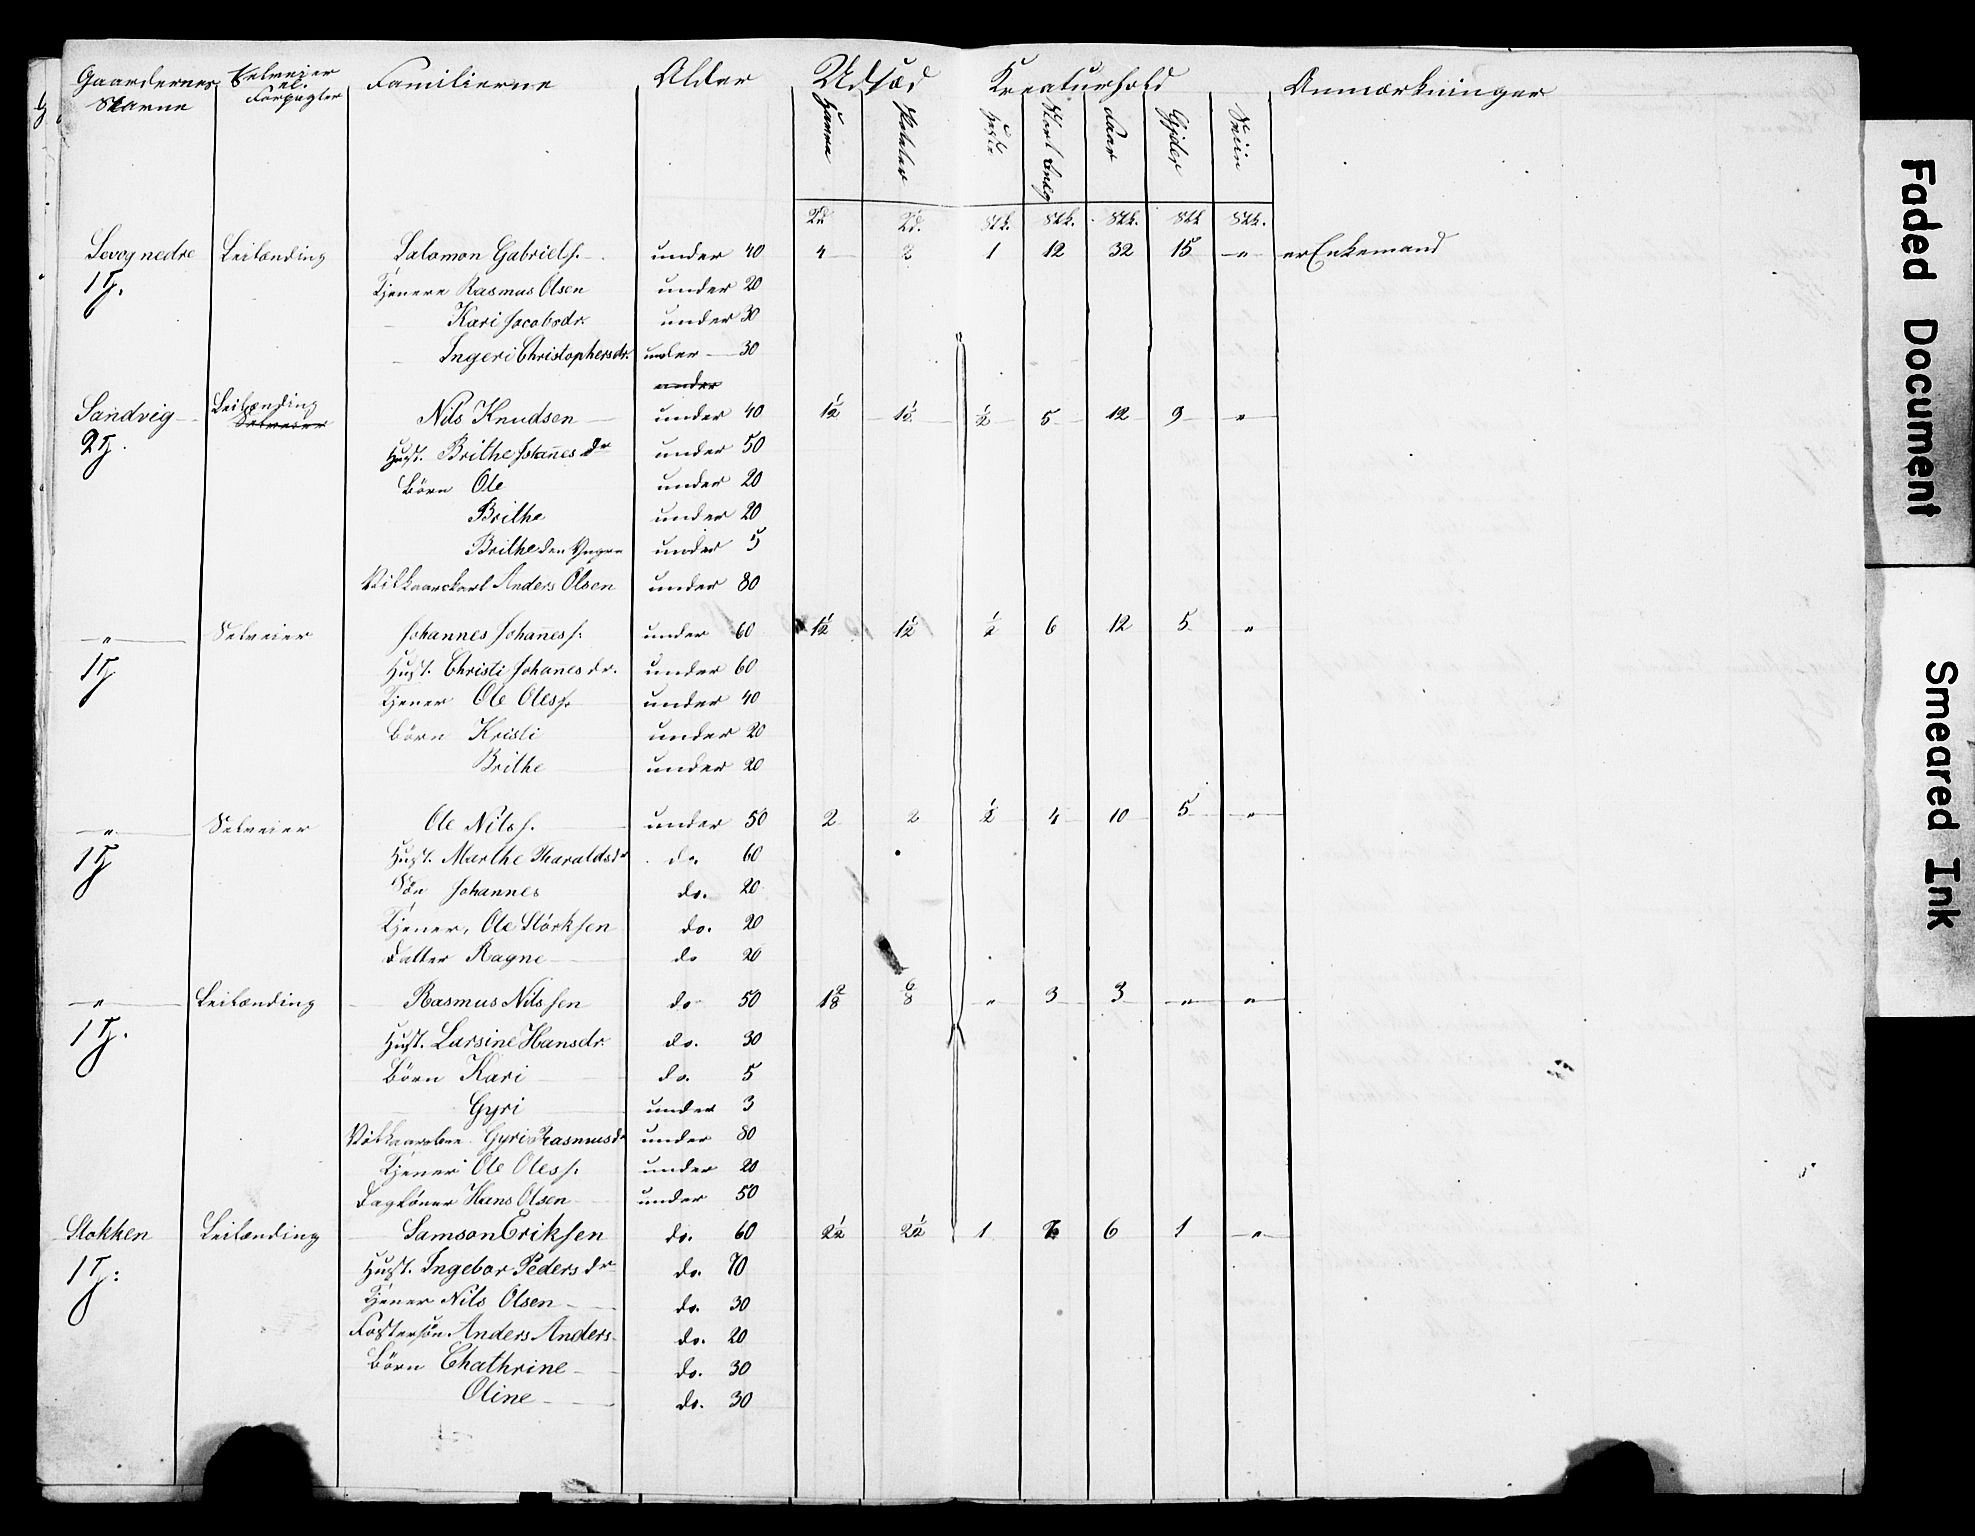 Gaardernes Navne Selveier el. Forpagter Familierne Alder Udsæd Kreaturhold Anmærkninger
Havre Poteter Heste Stort Qvæg Faar Gjeder Sviin
Td Td. Stk. Stk. Stk. Stk Stk.
Sevognedre Leilænding Salomon Gabriels. under 40 4 3 1 12 32 15 " er Enkemand
1 Tj. Tjenere Rasmus Olsen under 20
Kari Jacobsdr. under 30
Ingeri Christophersdr. under 30
under
Sandvig Leilænding Selveier Nils Knudsen under 40 1½ 1½ ½ 5 12 9 "
2 Tj. Hust. Brithe Johannesdr under 50
Börn Ole under 20
Brithe under 20
Brithe den Yngre under 5
Vilkaarskarl Anders Olsen under 80
" Selveier Johannes Johaness. under 60 1½ 1½ ½ 6 12 5 "
1 Tj Hust. Christi Johanesdr. under 60
Tjener Ole Oless. under 40
Börn Kristi under 20
Brithe under 20
" Selveier Ole Nilss. under 50 2 2 ½ 4 10 5 "
1 Tj Hust. Marthe Haraldsdr do. 60
Sön Johannes do. 20
Tjener, Ole Störksen do. 20
Datter Ragne do 20
" Leilænding Rasmus Nilssen do 50 1 2/8 6/8 " 3 3 " "
1 Tj. Hust. Lursine Hansdr. do. 30
Börn Kari do. 5
Gyri under 3
Gyri Rasmusdr under 80
Tjener Ole Oless. under 20
Daglöner Hans Olsen under 50
Stokken Leilænding Samson Eriksen do. 60 2½ 2½ 1 6 1 "
1 Tj: Hust. Ingebor Pedersdr do. 70
Tjener Nils Olsen do. 30
Fostersön Anders Anders. do. 20
Börn Chathrine do. 30
Oline do. 30
Faded Document
Smeared Ink